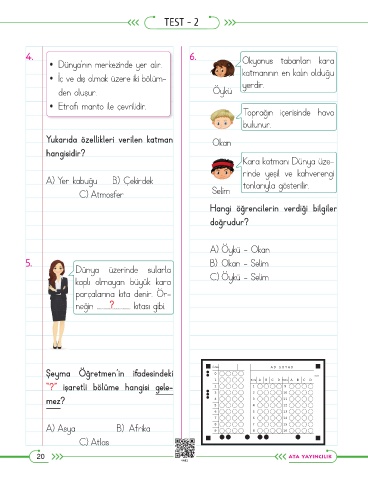 TEST - 2
4.
• Dünya'nın merkezinde yer alır.
• İç ve dış olmak üzere iki bölüm-
den oluşur.
• Etrafı manto ile çevrilidir.
Yukarıda özellikleri verilen katman
hangisidir?
A) Yer kabuğu B) Çekirdek
C) Atmosfer
5.
Dünya üzerinde sularla
kaplı olmayan büyük kara
parçalarına kıta denir. Ör-
neğin ....?.... kıtası gibi.
Şeyma Öğretmen'in ifadesindeki
"?" işaretli bölüme hangisi gele-
mez?
A) Asya B) Afrika
C) Atlas
6.
Okyanus tabanları kara
katmanının en kalın olduğu
yerdir.
Öykü
Toprağın içerisinde hava
bulunur.
Okan
Kara katmanı Dünya üze-
rinde yeşil ve kahverengi
tonlarıyla gösterilir.
Selim
Hangi öğrencilerin verdiği bilgiler
doğrudur?
A) Öykü - Okan
B) Okan - Selim
C) Öykü - Selim
AD SOYAD
A B C D A B C D
20
ATA YAYINCILIK